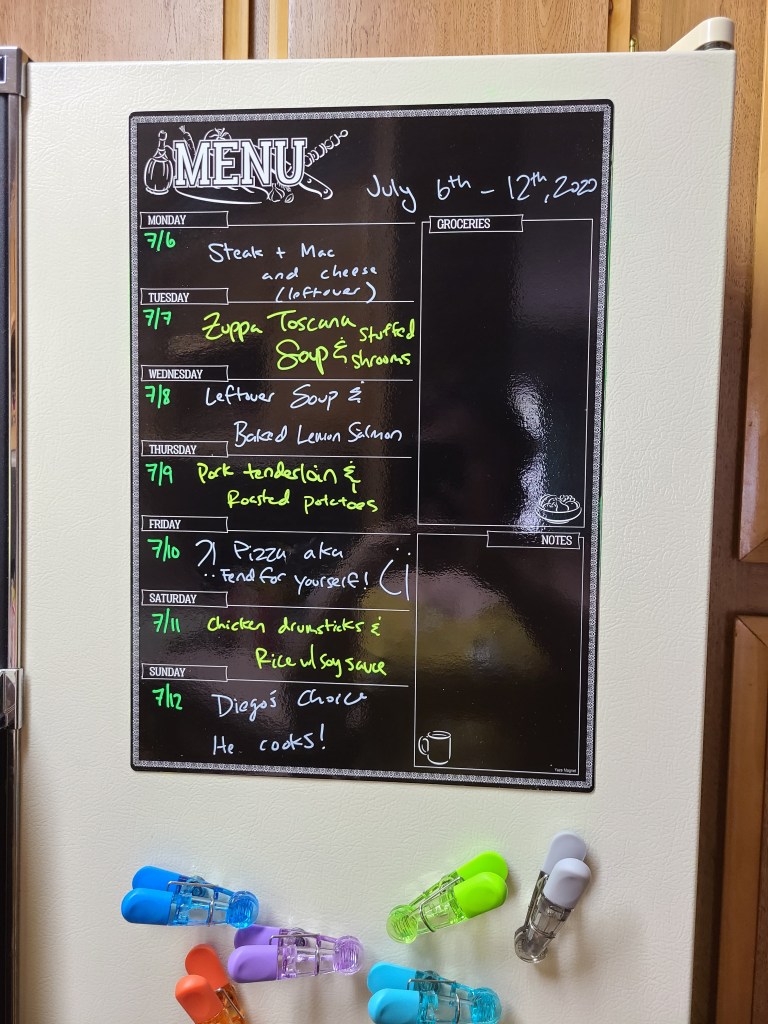 MENU
July 6th - 12th, 2020
MONDAY
7/6
Steak + Mac
and cheese
(leftover)
TUESDAY
7/7
Zuppa Toscana stuffed
Soup & shrooms
WEDNESDAY
7/8
Leftover Soup &
Baked Lemon Salmon
THURSDAY
7/9
Pork tenderloin &
Roasted potatoes
FRIDAY
7/10
Pizza aka
Fend for yourself!
SATURDAY
7/11
Chicken drumsticks &
Rice w/ soy sauce
SUNDAY
7/12
Diego's Choice
He cooks!
GROCERIES
NOTES